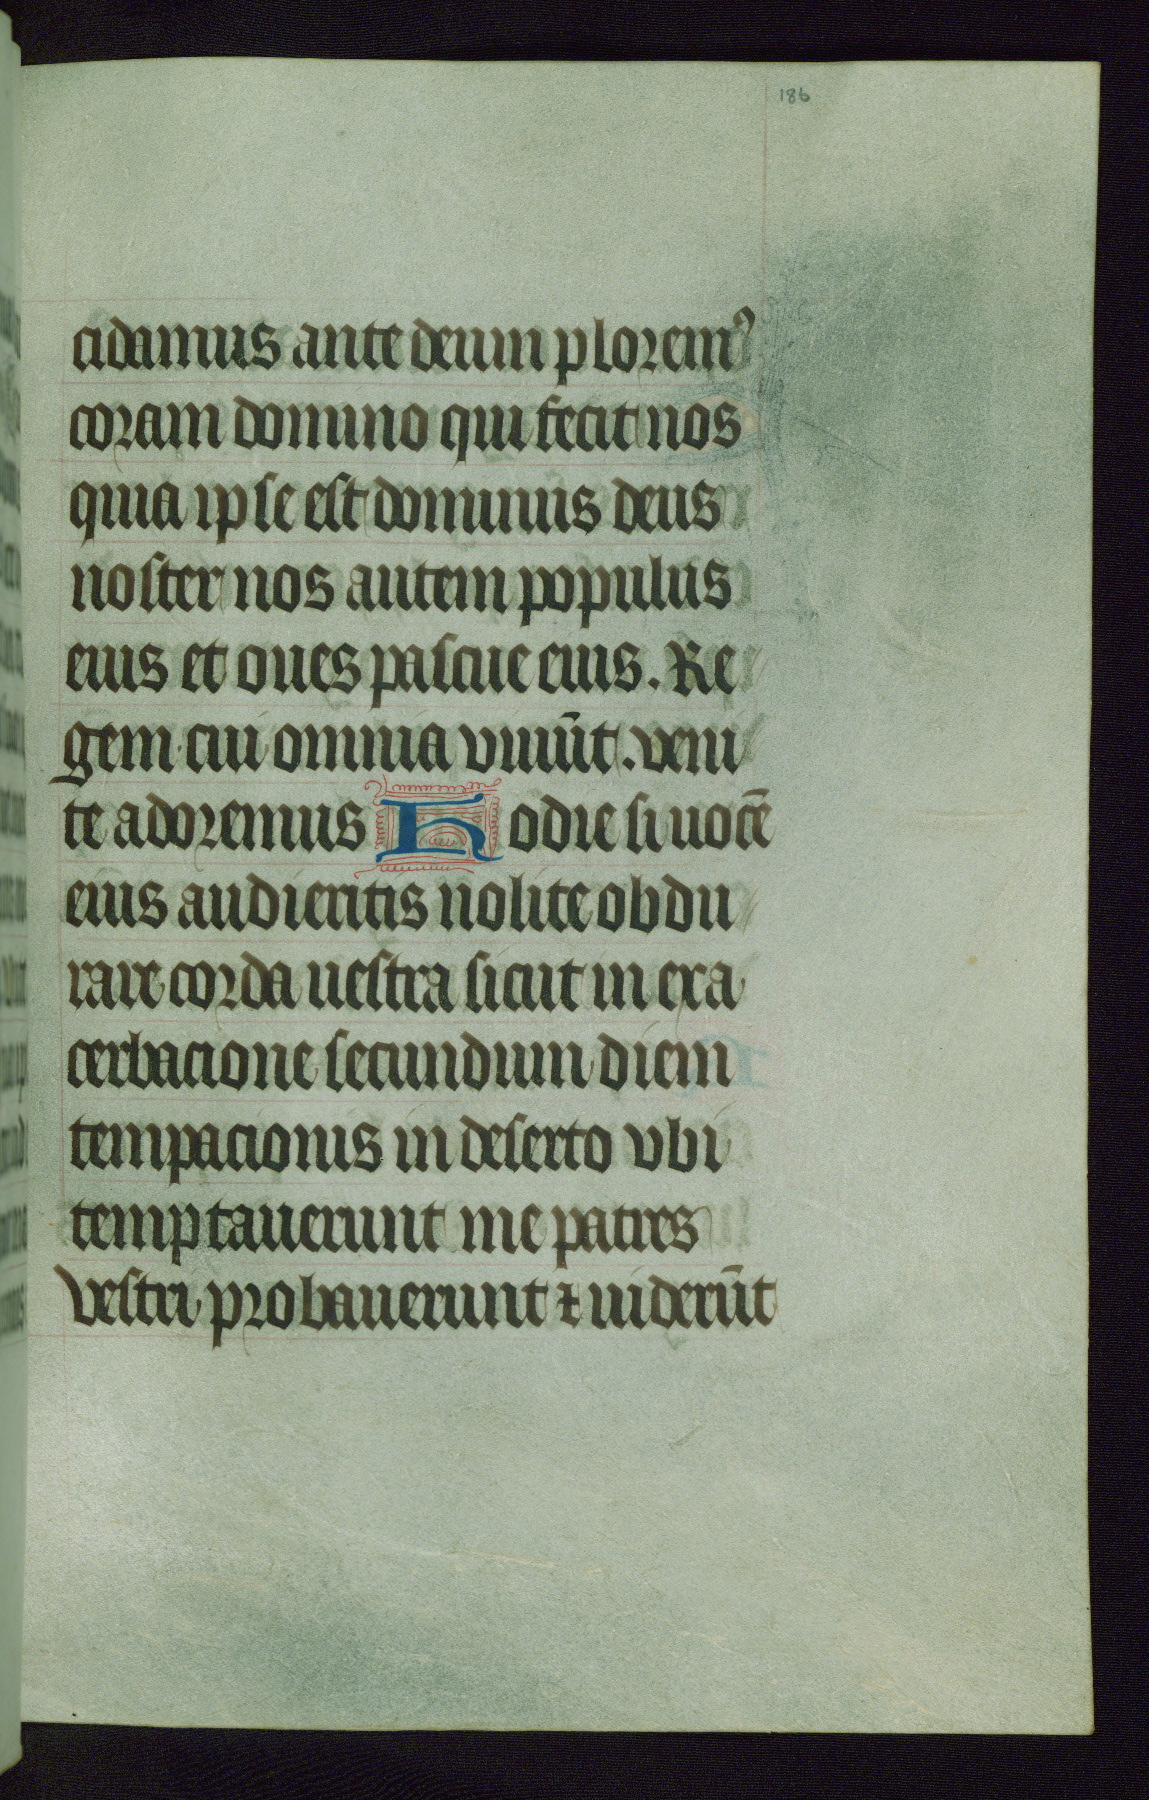 186
cidamus ante deum plorem⁹
coram domino qui fecit nos
quia ipse est dominus deus
noster nos autem populus
eius et oues pascue eius. Re
gem cui omnia viuūt. veni
te adoremus Hodie si uocē
eius audieritis nolite obdu
rare corda uestra sicut in exa
cerbacione secundum diem
tempacionis in deserto vbi
temptauerunt me patres
vestri probauerunt ⁊ uiderūt